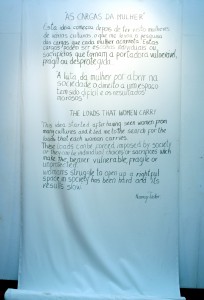 "AS CARGAS DA MULHER"
Esta idéia começou depois de ter visto mulheres
de várias culturas, o que me levou à pesquisa
das cargas que cada mulher acarreta. Estas
cargas podem ser escolhas individuais ou
sacrifícios que tornam a portadora vulnerável,
frágil ou desprotegida.
A luta da mulher por abrir na
sociedade o direito a um espaço
tem sido difícil e os resultados
morosos.
THE LOADS THAT WOMEN CARRY
This idea started after having seen women from
many cultures and it led me to the search for the
loads that each woman carries.
These loads can be forced, imposed by society
or they can be individual choices or sacrifices which
make the bearer vulnerable, fragile or
unprotected.
Women's struggle to open up a rightful
space in society has been hard and its
results slow.